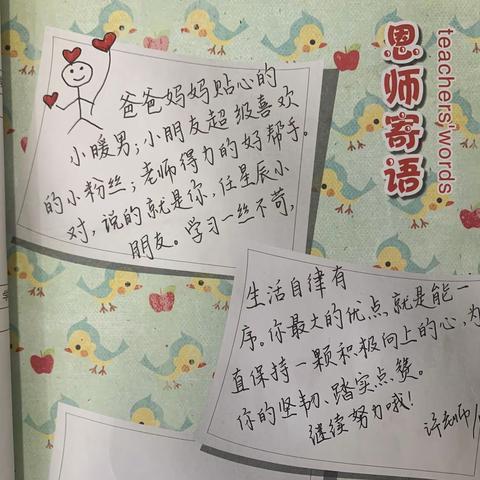 恩师寄语
teachers'words
爸爸妈妈贴心的
小暖男;小朋友超级喜欢
的小粉丝;老师得力的好帮手。
对,说的就是你,任星辰小
朋友。学习一丝不苟,
生活自律有
序。你最大的优点就是能一
直保持一颗积极向上的心,为
你的坚韧、踏实点赞。
继续努力哦!
许老师